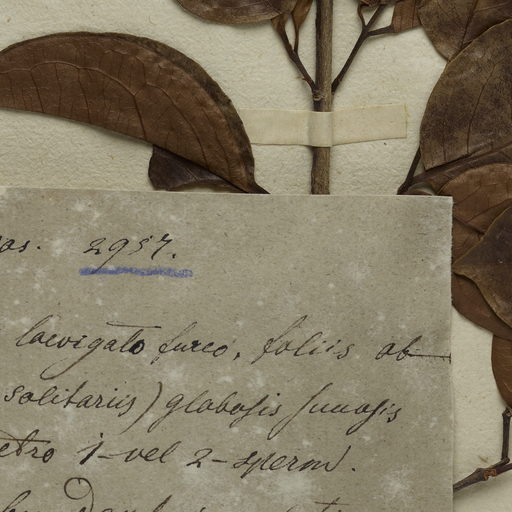 os. 2957.
laevigato fusco, foliis ob-
solitariis) globosis
etro 1-vel 2-sperm.